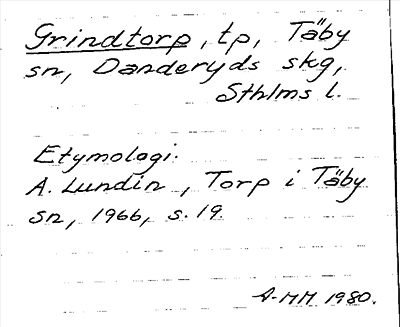 Grindtorp, tp, Täby
sn, Danderyds skg,
Sthlms l.
Etymologi.
A. Lundin, Torp i Täby
sn, 1966, s. 19
A-MM 1980.